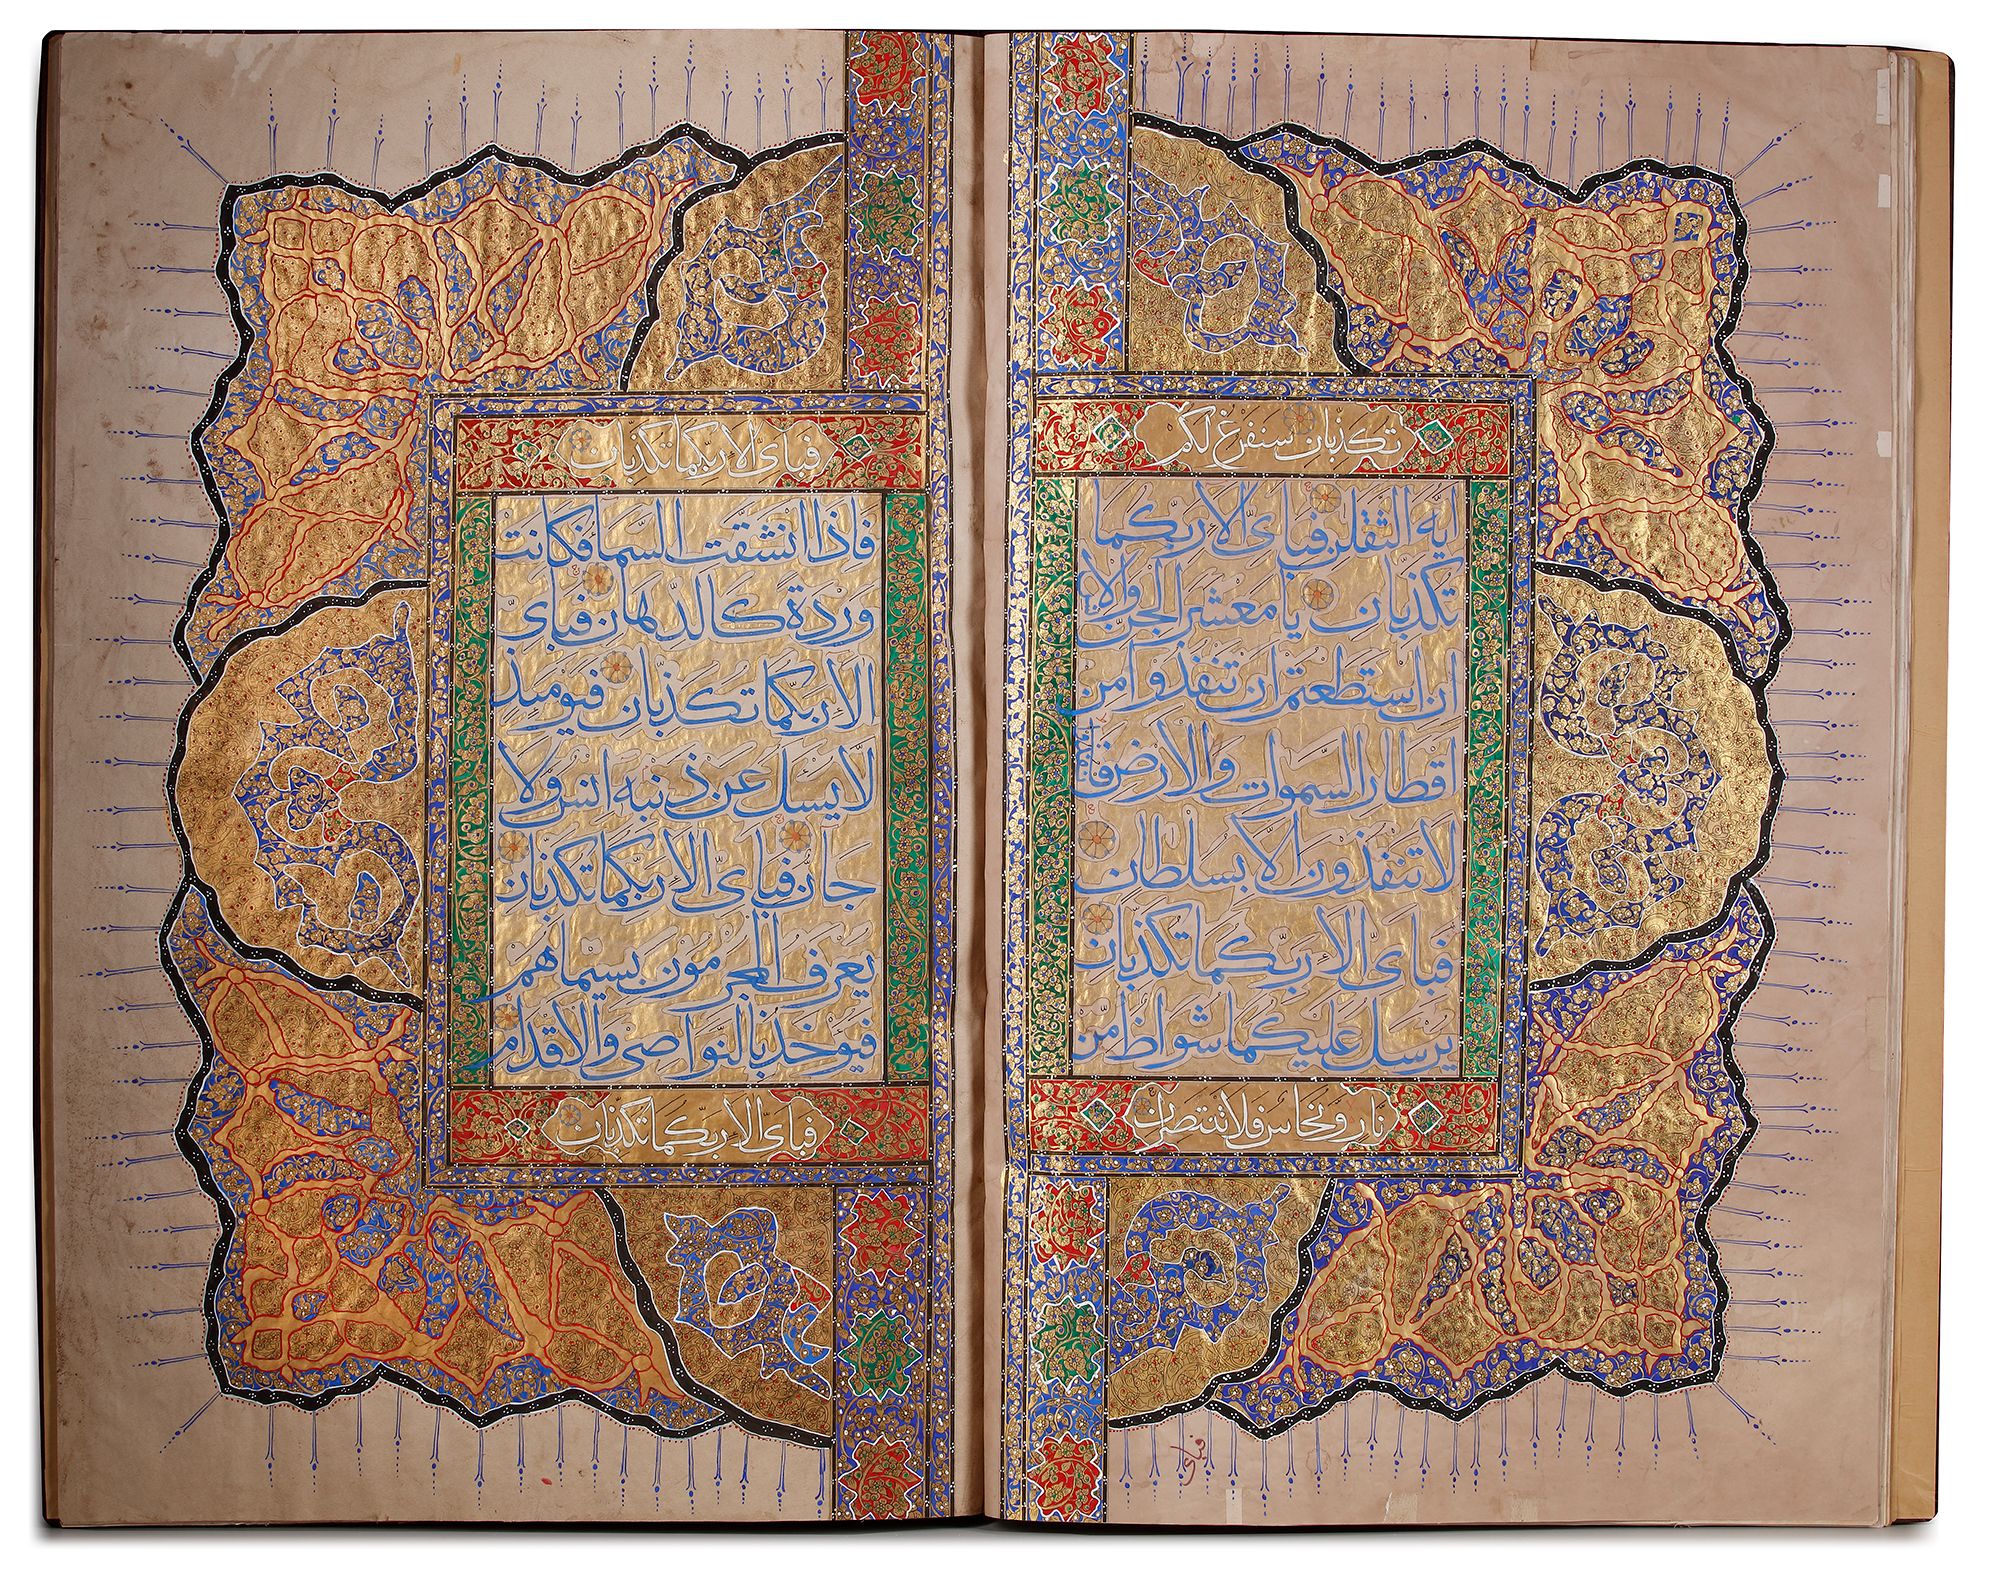 تكذبان سنفرغ لكم
ايه الثقلن فباىّ الاء ربّكما
تكذبان يا معشر الجنّ والا
ان استطعتم ان تنفذوا من
اقطار السّموات والارض فا
لا تنفذون الا بسلطان
فباىّ الاء ربّكما تكذبان
يرسل عليكما شواظ من
نار ونحاس فلا تنتصران
فباى
فباىّ الاء ربّكما تكذبان
فاذا انشقت السما فكانت
وردة كالدّهان فباىّ
الاء ربّكما تكذبان فيومئذ
لّا يسل عن ذنبه انس ولا
جان فباىّ الاء ربّكما تكذبان
يعرف المجرمون بسيماهم
فيوخذ بالنّواصى والاقدام
فباىّ الاء ربّكما تكذبان